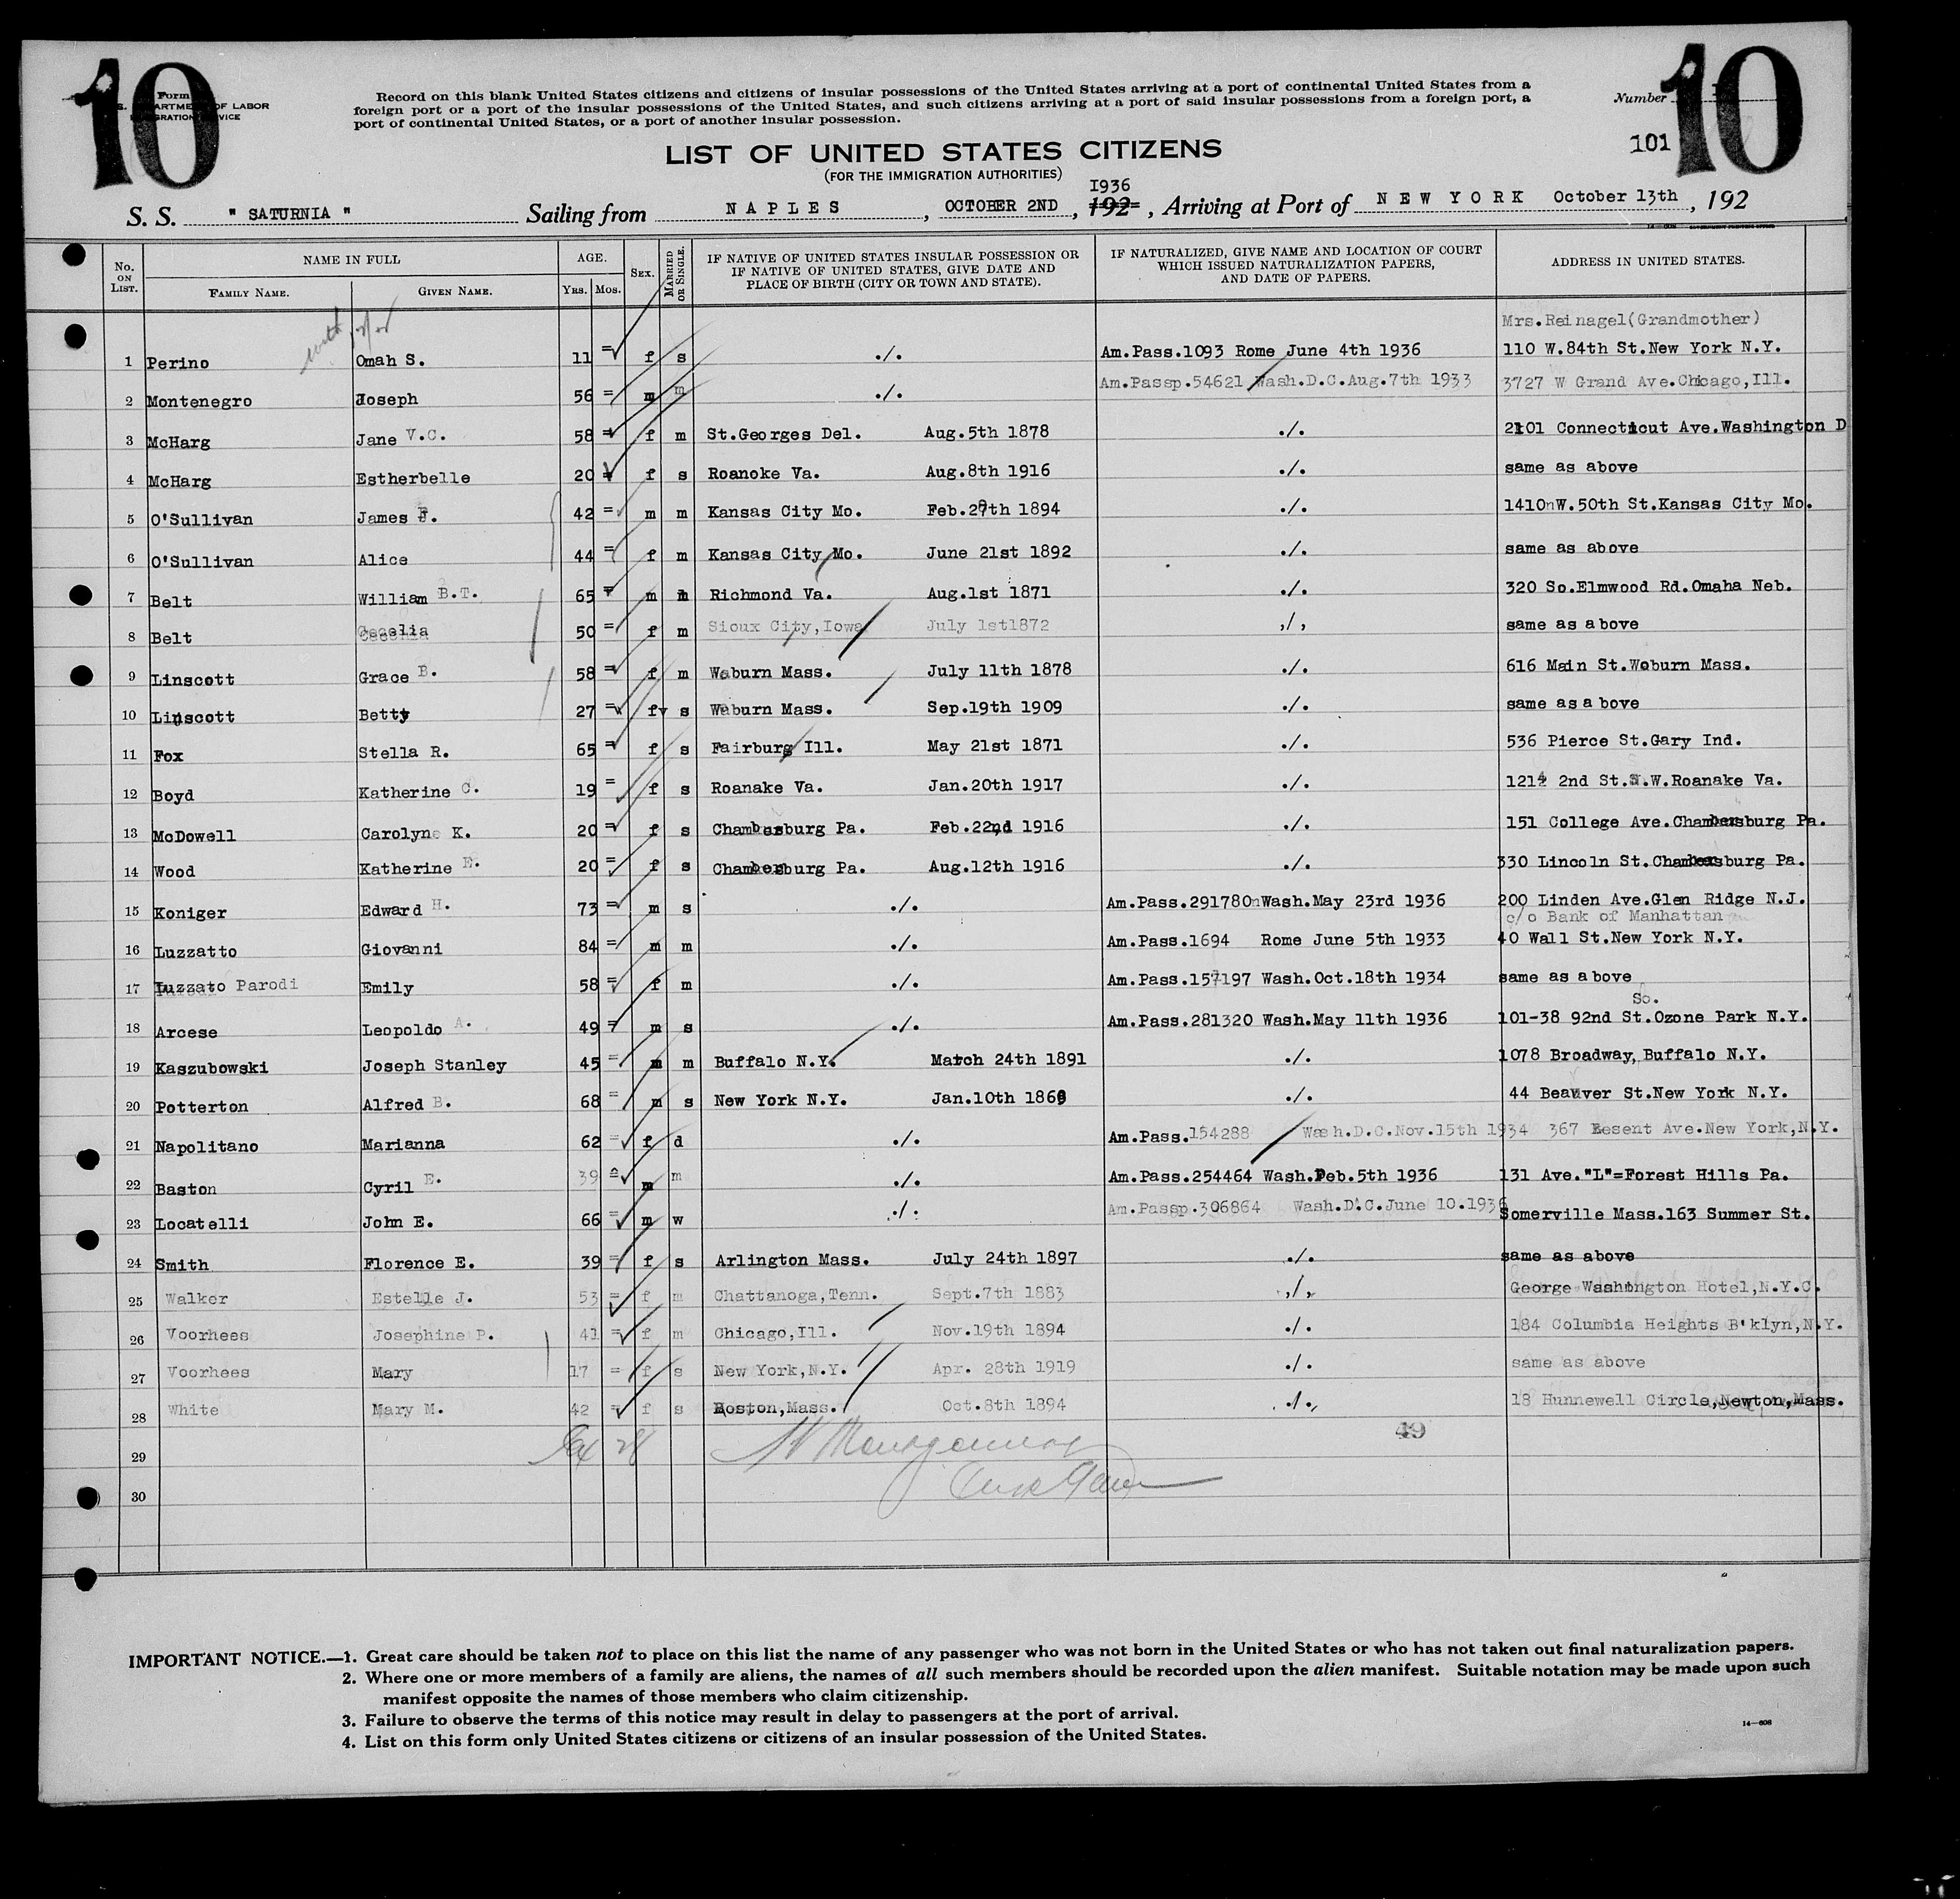 10
Form
U. S. DEPARTMENT OF LABOR
IMMIGRATION SERVICE
Record on this blank United States citizens and citizens of insular possessions of the United States arriving at a port of continental United States from a
foreign port or a port of the insular possessions of the United States, and such citizens arriving at a port of said insular possessions from a foreign port, a
port of continental United States, or a port of another insular possession.
Number
10
101
LIST OF UNITED STATES CITIZENS
(FOR THE IMMIGRATION AUTHORITIES)
1936
S. S. " SATURNIA " Sailing from NAPLES, OCTOBER 2ND, 192 , Arriving at Port of NEW YORK October 13th, 192
No. ON LIST. NAME IN FULL FAMILY NAME. GIVEN NAME. AGE. YRS. MOS. SEX. MARRIED OR SINGLE. IF NATIVE OF UNITED STATES INSULAR POSSESSION OR IF NATIVE OF UNITED STATES, GIVE DATE AND PLACE OF BIRTH (CITY OR TOWN AND STATE). IF NATURALIZED, GIVE NAME AND LOCATION OF COURT WHICH ISSUED NATURALIZATION PAPERS, AND DATE OF PAPERS. ADDRESS IN UNITED STATES.
Mrs.Reinagel(Grandmother)
1 Perino Omah S. 11 = f s ./. Am.Pass.1093 Rome June 4th 1936 110 W.84th St.New York N.Y.
2 Montenegro Joseph 56 = m m ./. Am.Passp.54621 Wash.D.C.Aug.7th 1933 3727 W Grand Ave.Chicago,Ill.
3 McHarg Jane V.C. 58 = f m St.Georges Del. Aug.5th 1878 ./. 2101 Connecticut Ave.Washington D
4 McHarg Estherbelle 20 = f s Roanoke Va. Aug.8th 1916 ./. same as above
5 O'Sullivan James F. 42 = m m Kansas City Mo. Feb.27th 1894 ./. 1410 W.50th St.Kansas City Mo.
6 O'Sullivan Alice 44 = f m Kansas City Mo. June 21st 1892 ./. same as above
7 Belt William B.T. 65 = m m Richmond Va. Aug.1st 1871 ./. 320 So.Elmwood Rd.Omaha Neb.
8 Belt Cecelia 50 = f m Sioux City,Iowa July 1st1872 ./. same as above
9 Linscott Grace B. 58 = f m Woburn Mass. July 11th 1878 ./. 616 Main St.Woburn Mass.
10 Linscott Betty 27 = f s Woburn Mass. Sep.19th 1909 ./. same as a bove
11 Fox Stella R. 65 = f s Fairburg Ill. May 21st 1871 ./. 536 Pierce St.Gary Ind.
12 Boyd Katherine C. 19 = f s Roanake Va. Jan.20th 1917 ./. 1214 2nd St.S.W.Roanake Va.
13 McDowell Carolyne K. 20 = f s Chambersburg Pa. Feb.22nd 1916 ./. 151 College Ave.Chambersburg Pa.
14 Wood Katherine E. 20 = f s Chambersburg Pa. Aug.12th 1916 ./. 330 Lincoln St.Chambersburg Pa.
15 Koniger Edward H. 73 = m s ./. Am.Pass.291780 Wash.May 23rd 1936 200 Linden Ave.Glen Ridge N.J.
c/o Bank of Manhattan
16 Luzzatto Giovanni 84 = m m ./. Am.Pass.1694 Rome June 5th 1933 40 Wall St.New York N.Y.
17 Luzzato Parodi Emily 58 = f m ./. Am.Pass.157197 Wash.Oct.18th 1934 same as above
So.
18 Arcese Leopoldo A. 49 = m s ./. Am.Pass.281320 Wash.May 11th 1936 101-38 92nd St.Ozone Park N.Y.
19 Kaszubowski Joseph Stanley 45 = m m Buffalo N.Y. March 24th 1891 ./. 1078 Broadway,Buffalo N.Y.
20 Potterton Alfred B. 68 = m s New York N.Y. Jan.10th 1868 ./. 44 Beaver St.New York N.Y.
21 Napolitano Marianna 62 = f d ./. Am.Pass.154288 Wash.D.C.Nov.15th 1934 367 Ave.New York,N.Y.
22 Baston Cyril E. 39 = m m ./. Am.Pass.254464 Wash.Feb.5th 1936 131 Ave."L"=Forest Hills Pa.
23 Locatelli John E. 66 = m w ./. Am.Passp.306864 Wash.D.C.June 10.1936 Somerville Mass.163 Summer St.
24 Smith Florence E. 39 = f s Arlington Mass. July 24th 1897 ./. same as above
25 Walker Estelle J. 53 = f m Chattanoga,Tenn. Sept.7th 1883 ./. George Washington Hotel,N.Y.C.
26 Voorhees Josephine P. 41 = f m Chicago,Ill. Nov.19th 1894 ./. 184 Columbia Heights B'klyn,N.Y.
27 Voorhees Mary 17 = f s New York,N.Y. Apr. 28th 1919 ./. same as above
28 White Mary M. 42 = f s Boston,Mass. Oct.8th 1894 ./. 18 Hunnewell Circle,Newton,Mass.
49
29
30
IMPORTANT NOTICE.—1. Great care should be taken not to place on this list the name of any passenger who was not born in the United States or who has not taken out final naturalization papers.
2. Where one or more members of a family are aliens, the names of all such members should be recorded upon the alien manifest. Suitable notation may be made upon such
manifest opposite the names of those members who claim citizenship.
3. Failure to observe the terms of this notice may result in delay to passengers at the port of arrival.
4. List on this form only United States citizens or citizens of an insular possession of the United States.
14—608